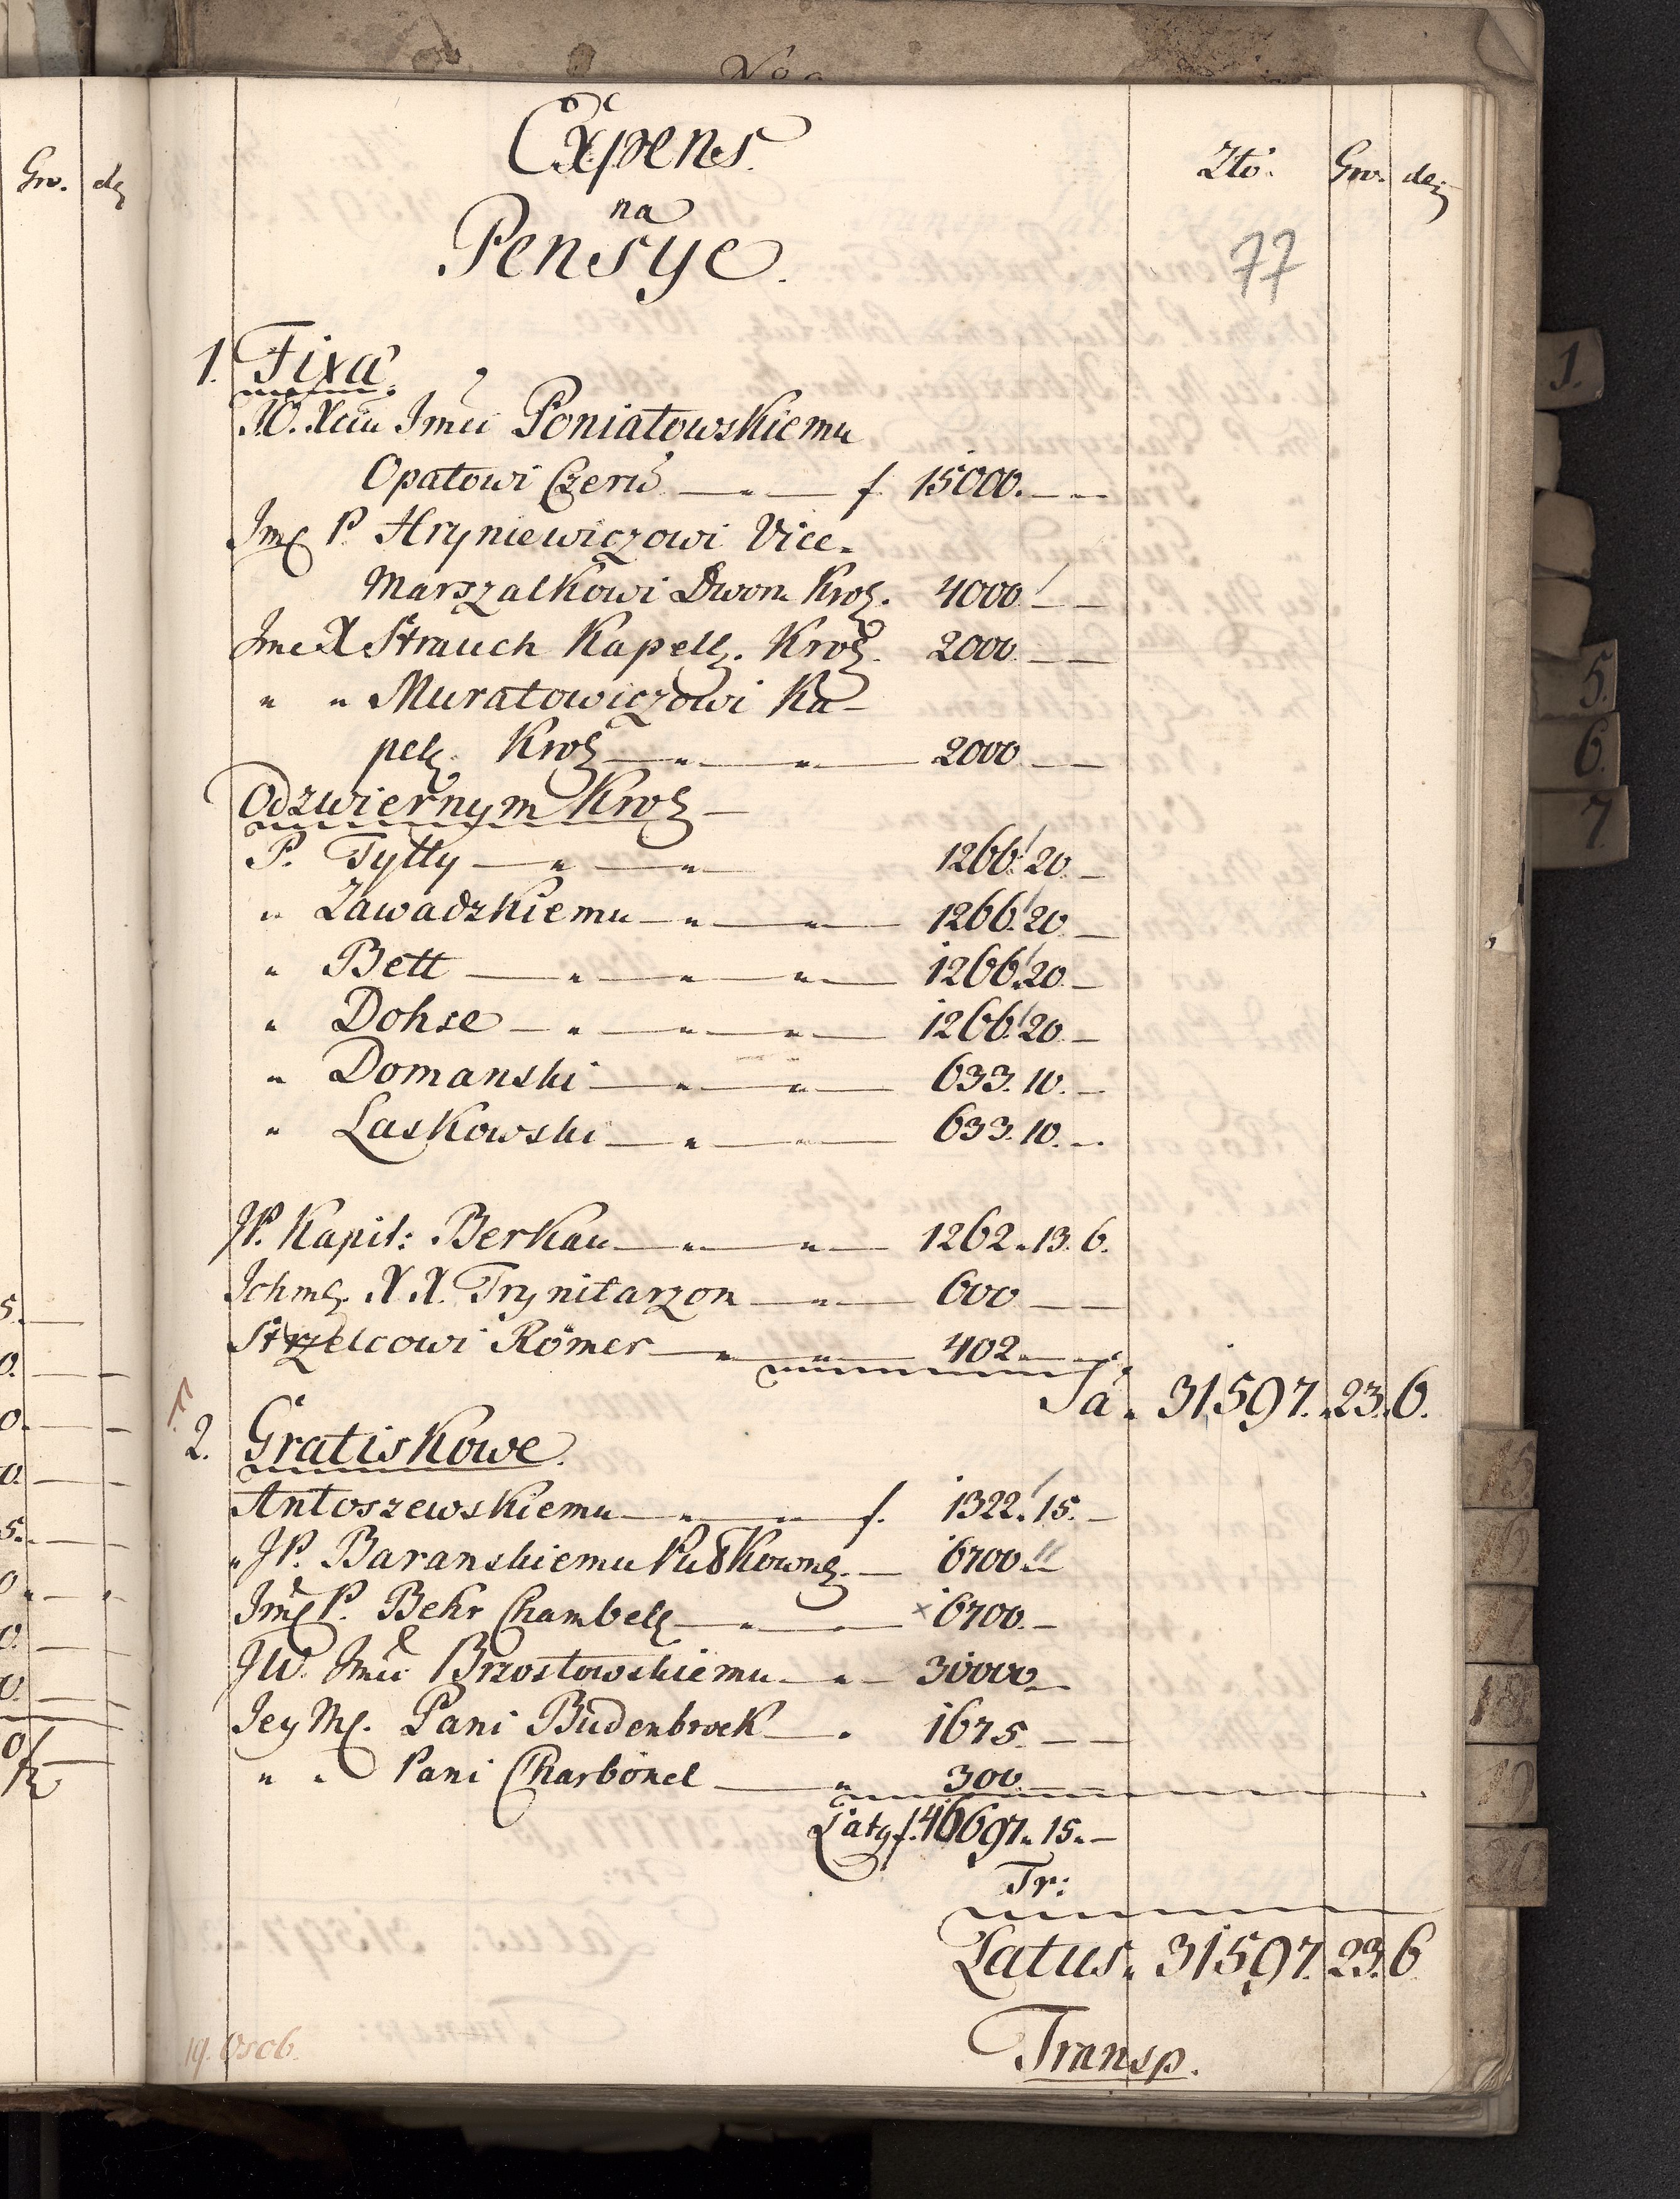 Expens
na
Pensye.
Zło. Gro. den
77
1. Fixa.
J.O. Xciu Jmci Poniatowskiemu
Opatowi Czerw. f. 15000.
Jmc P. Hryniewiczowi Vice-
Marszalkowi Dworu Krol. 4000
Jmc X Strauch Kapell. Krol. 2000
" " Muratowiczowi Ka-
pell. Krol 2000
Odzwiernym Krol
P. Tytty 1266. 20.
" Zawadzkiemu 1266. 20
" Bett 1266. 20
" Dohse 1266. 20
" Domanski 633. 10.
" Laskowski 633. 10.
JP. Kapit: Berkau 1262. 13. 6.
Ichmc. X.X. Trynitarzom 600
Strzelcowi Römer 402
Sa. 31597. 23. 6.
2. Gratiskowe.
Antoszewskiemu f. 1322. 15.
" JP. Baranskiemu Pułkowne. 6700
Jmc P. Behr Chambell × 6700.
JW. Jmci Brzostowskiemu 30000
Jey Mc. Pani Budenbrock 1675
" " Pani Charbonel 300
Lat. f. 46697. 15.
Tr:
Latus. 31597. 23. 6
Transp.
19. Osob.
Gro. den
1.
5.
6.
7.
15
16
17
18
19
20